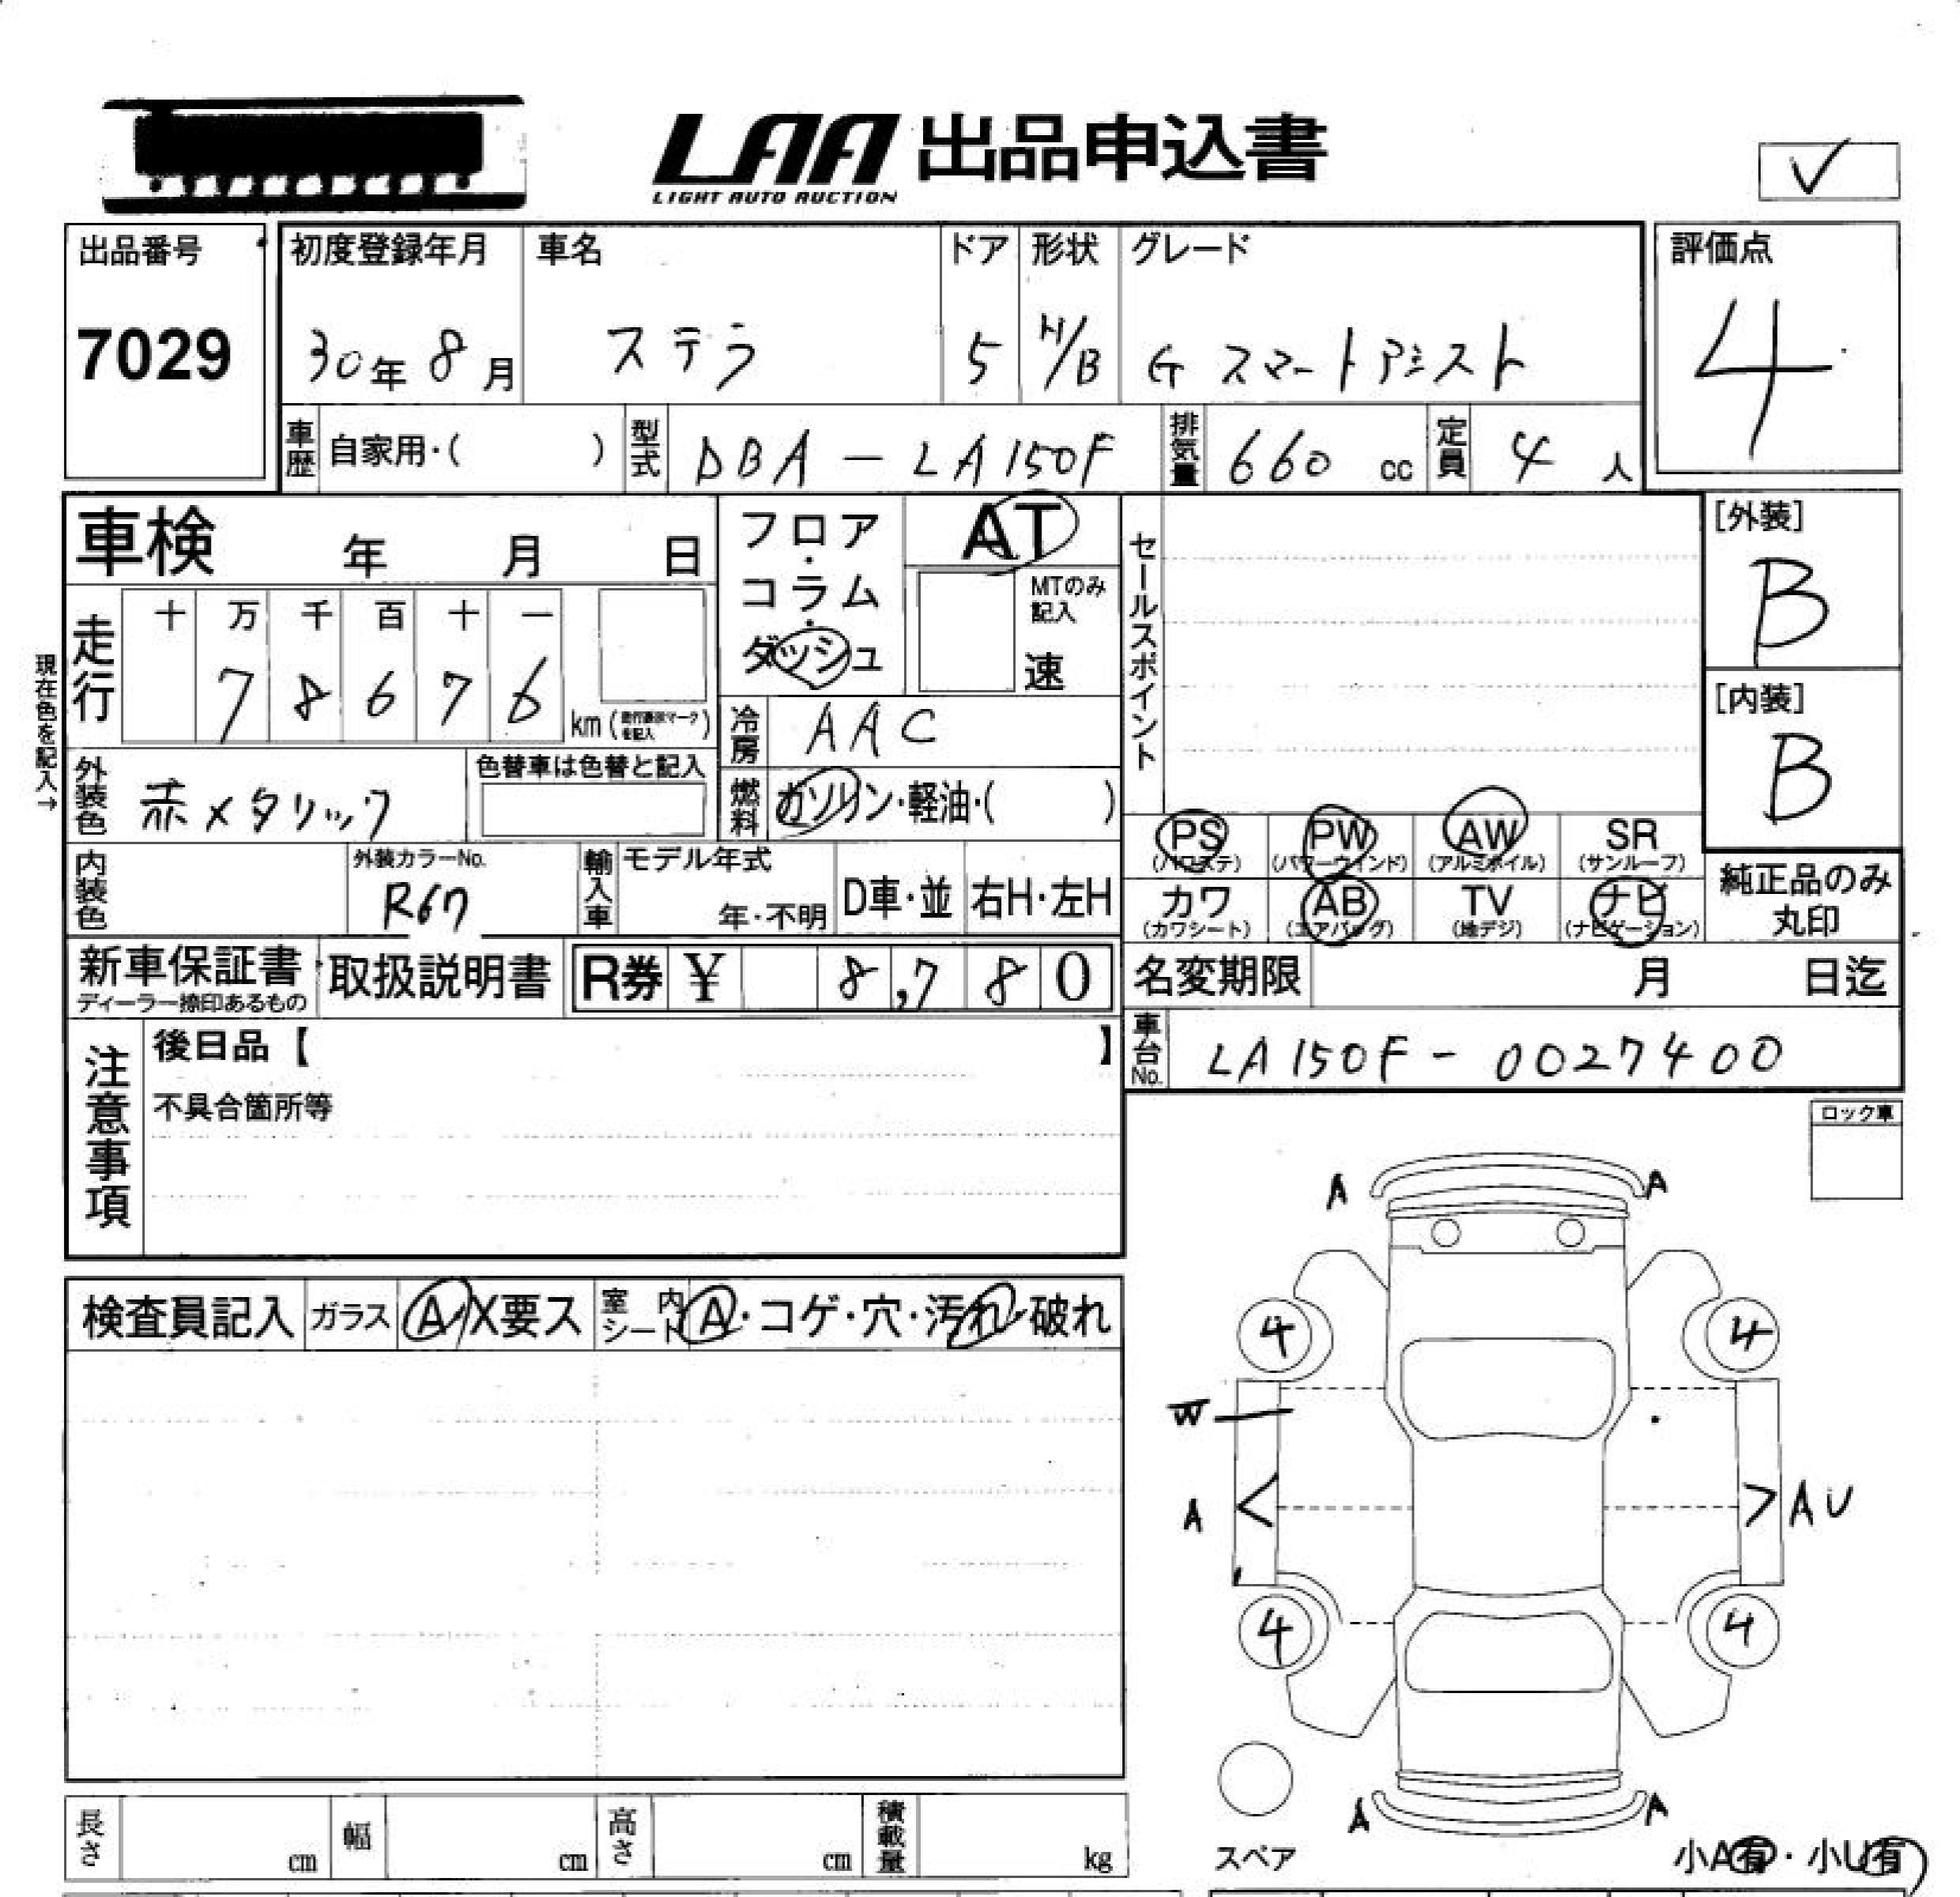 LAA 出品申込書
LIGHT AUTO AUCTION
✓
出品番号 初度登録年月 車名 ドア 形状 グレード 評価点
7029 30年 8月 ステラ 5 H/B G スマートアシスト 4
車歴 自家用・( ) 型式 DBA - LA150F 排気量 660 cc 定員 4 人
車検 年 月 日 フロア・コラム・ダッシュ AT セールスポイント [外装]
B
MTのみ記入
速
現在色を記入→
走行 十 万 千 百 十 一
7 8 6 7 6 km (走行要示マークを記入)
[内装]
B
冷房 AAC
外装色 赤メタリック 色替車は色替と記入 燃料 ガソリン・軽油・( )
PS PW AW SR
(パワステ) (パワーウィンド) (アルミホイル) (サンルーフ)
内装色 外装カラーNo. 輸入車 モデル年式 D車・並 右H・左H
R67 年・不明
カワ AB TV ナビ 純正品のみ丸印
(カワシート) (エアバッグ) (地デジ) (ナビゲーション)
新車保証書 取扱説明書 R券 ¥ 8,780 名変期限 月 日迄
ディーラー捺印あるもの
注意事項 後日品【 】 車台No. LA150F - 0027400
不具合箇所等
ロック車
A A
検査員記入 ガラス A/X要ス 室内シート A・コゲ・穴・汚れ・破れ
4 4
W
A < > AU
4 4
A A
長さ cm 幅 cm 高さ cm 積載量 kg
スペア 小A有・小U有